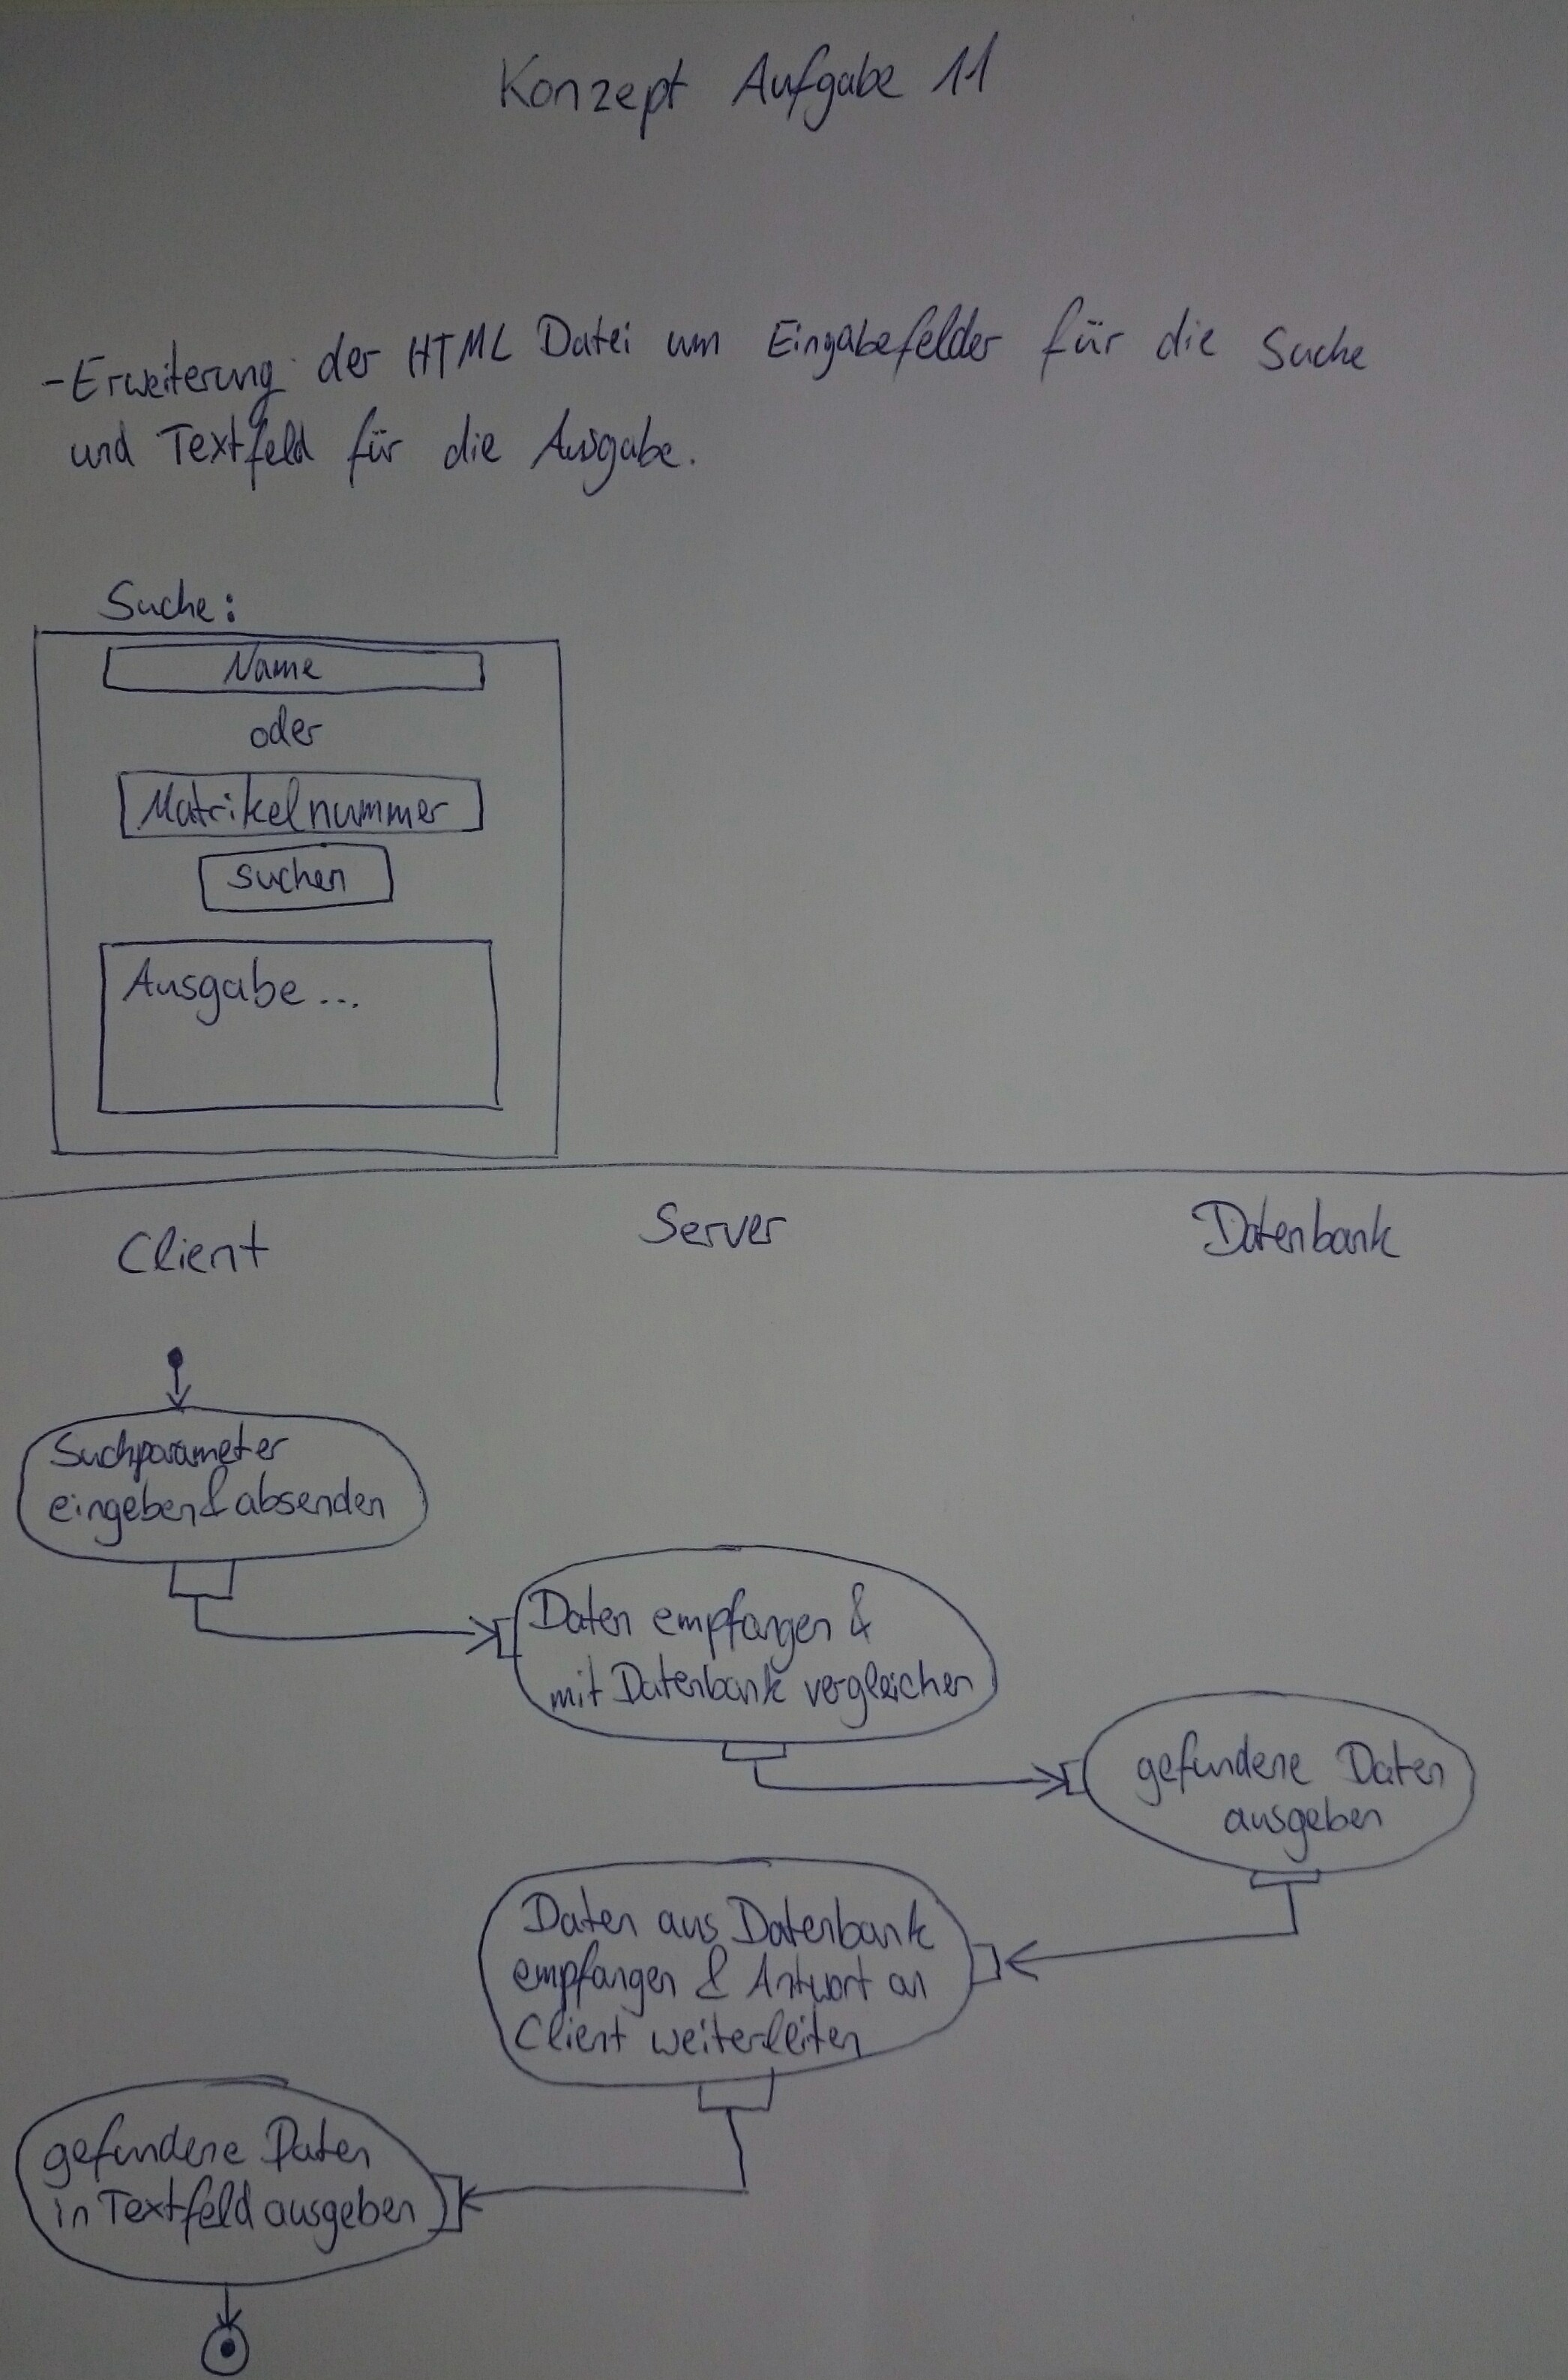 Konzept Aufgabe 11
- Erweiterung der HTML Datei um Eingabefelder für die Suche
und Textfeld für die Ausgabe.
Suche:
Name
oder
Matrikelnummer
suchen
Ausgabe ...
Client
Server
Datenbank
Suchparameter
eingeben & absenden
Daten empfangen &
mit Datenbank vergleichen
gefundene Daten
ausgeben
Daten aus Datenbank
empfangen & Antwort an
Client weiterleiten
gefundene Daten
in Textfeld ausgeben